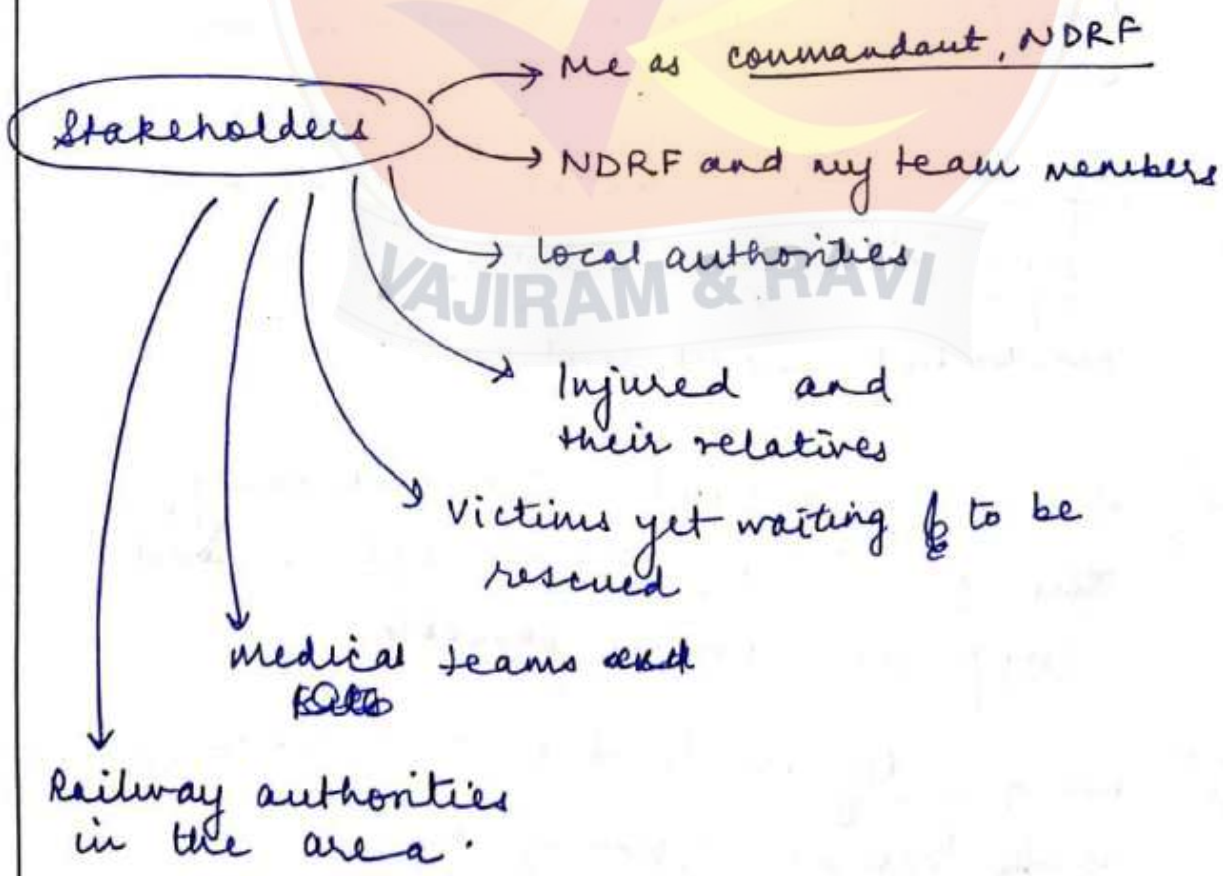 Stakeholders
Me as commandant, NDRF
NDRF and my team members
local authorities
VAJIRAM & RAVI
Injured and
their relatives
Victims yet waiting to be
rescued
medical teams
Railway authorities
in the area.